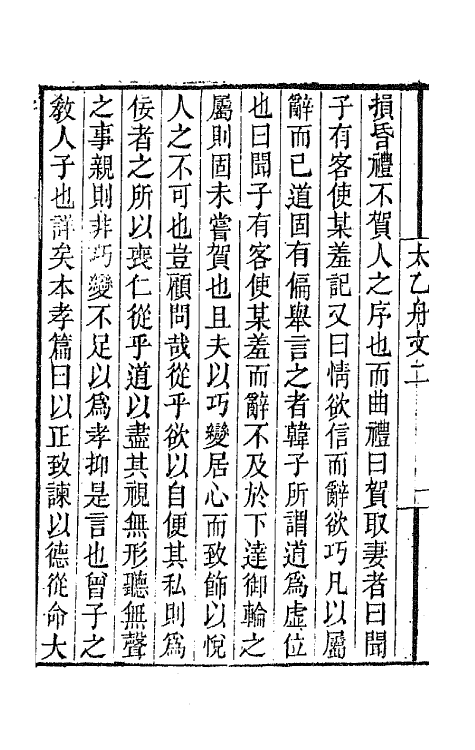 太乙舟文二
損昏禮不賀人之序也而曲禮曰賀取妻者曰聞
子有客使某羞記又曰情欲信而辭欲巧凡以屬
辭而已道固有偏舉言之者韓子所謂道爲虚位
也曰聞子有客使某羞而辭不及於下達御輪之
屬則固未嘗賀也且夫以巧變居心而致飾以悅
人之不可也豈顧問哉從乎欲以自便其私則爲
佞者之所以喪仁從乎道以盡其視無形聽無聲
之事親則非巧變不足以爲孝抑是言也曾子之
敎人子也詳矣本孝篇曰以正致諫以德從命大